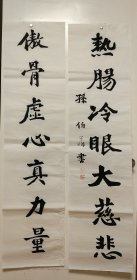 熱腸冷眼大慈悲
傲骨虛心真力量
孫伯翔書